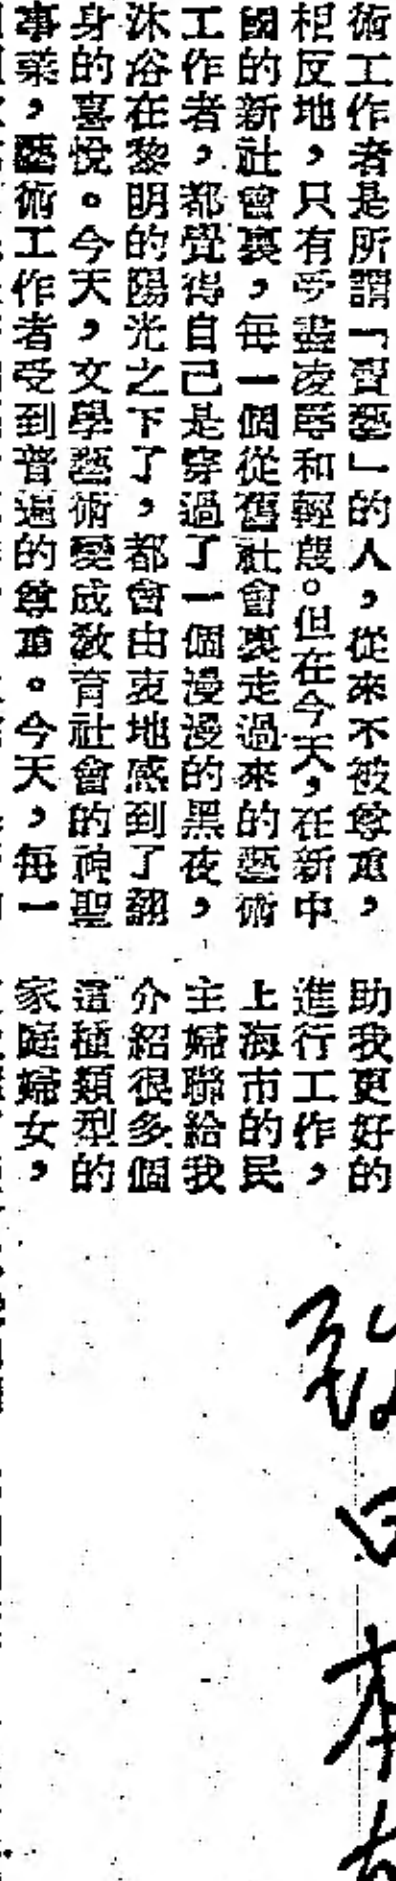 術工作者是所謂「賣藝」的人，從來不被尊重，
相反地，只有受盡凌辱和輕蔑。但在今天，在新中
國的新社會裏，每一個從舊社會裏走過來的藝術
工作者，都覺得自己是穿過了一個漫漫的黑夜，
沐浴在黎明的陽光之下了，都會由衷地感到了翻
身的喜悅。今天，文學藝術變成教育社會的神聖
事業，藝術工作者受到普遍的尊重。今天，每一
助我更好的
進行工作，
上海市的民
主婦聯給我
介紹很多個
這種類型的
家庭婦女，